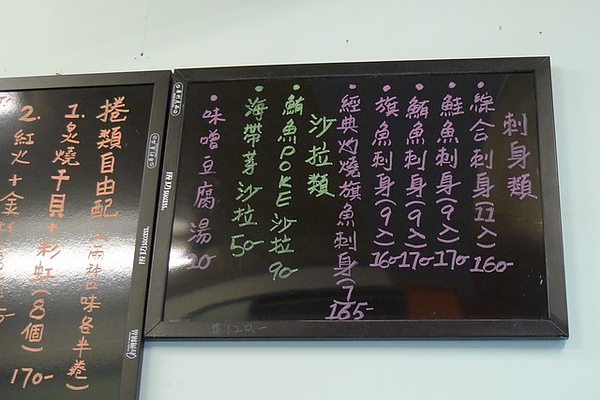 刺身類
綜合刺身(11入)160-
鮭魚刺身(9入)170-
鮪魚刺身(9入)170-
旗魚刺身(9入)160-
經典炙燒旗魚刺身(7 165-
沙拉類
鮪魚POKE沙拉 90-
海帶芽沙拉 50-
味噌豆腐湯 20
$120.-
捲類自由配(兩款口味各半捲)
1. 炙燒干貝+彩虹(8個)170-
2. 紅火+金
success.